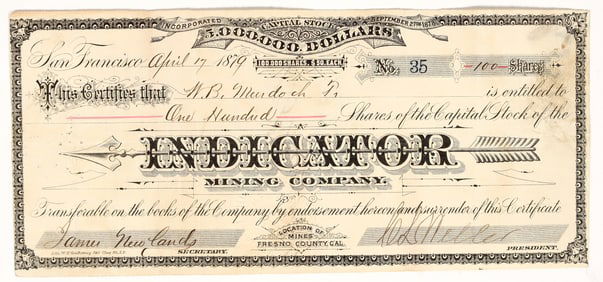 INCORPORATED CAPITAL STOCK SEPTEMBER 27TH 1878
5,000,000, DOLLARS
San Francisco April 17 1879 100,000 SHARES, $50 EACH No. 35 -100- Shares
This Certifies that W.B. Murdoch Tr. is entitled to
One Hundred Shares of the Capital Stock of the
INDICATOR
MINING COMPANY.
Transferable on the books of the Company by endorsement hereon and surrender of this Certificate
LOCATION OF
MINES
FRESNO, COUNTY, CAL.
James Newlands
SECRETARY. PRESIDENT.